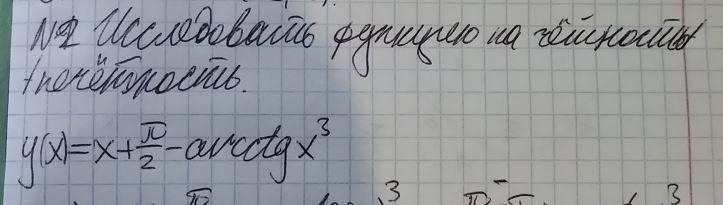 №2 Исследовать функцию на чётность
/нечётность.
y(x)=x+π/2-arcctgx³